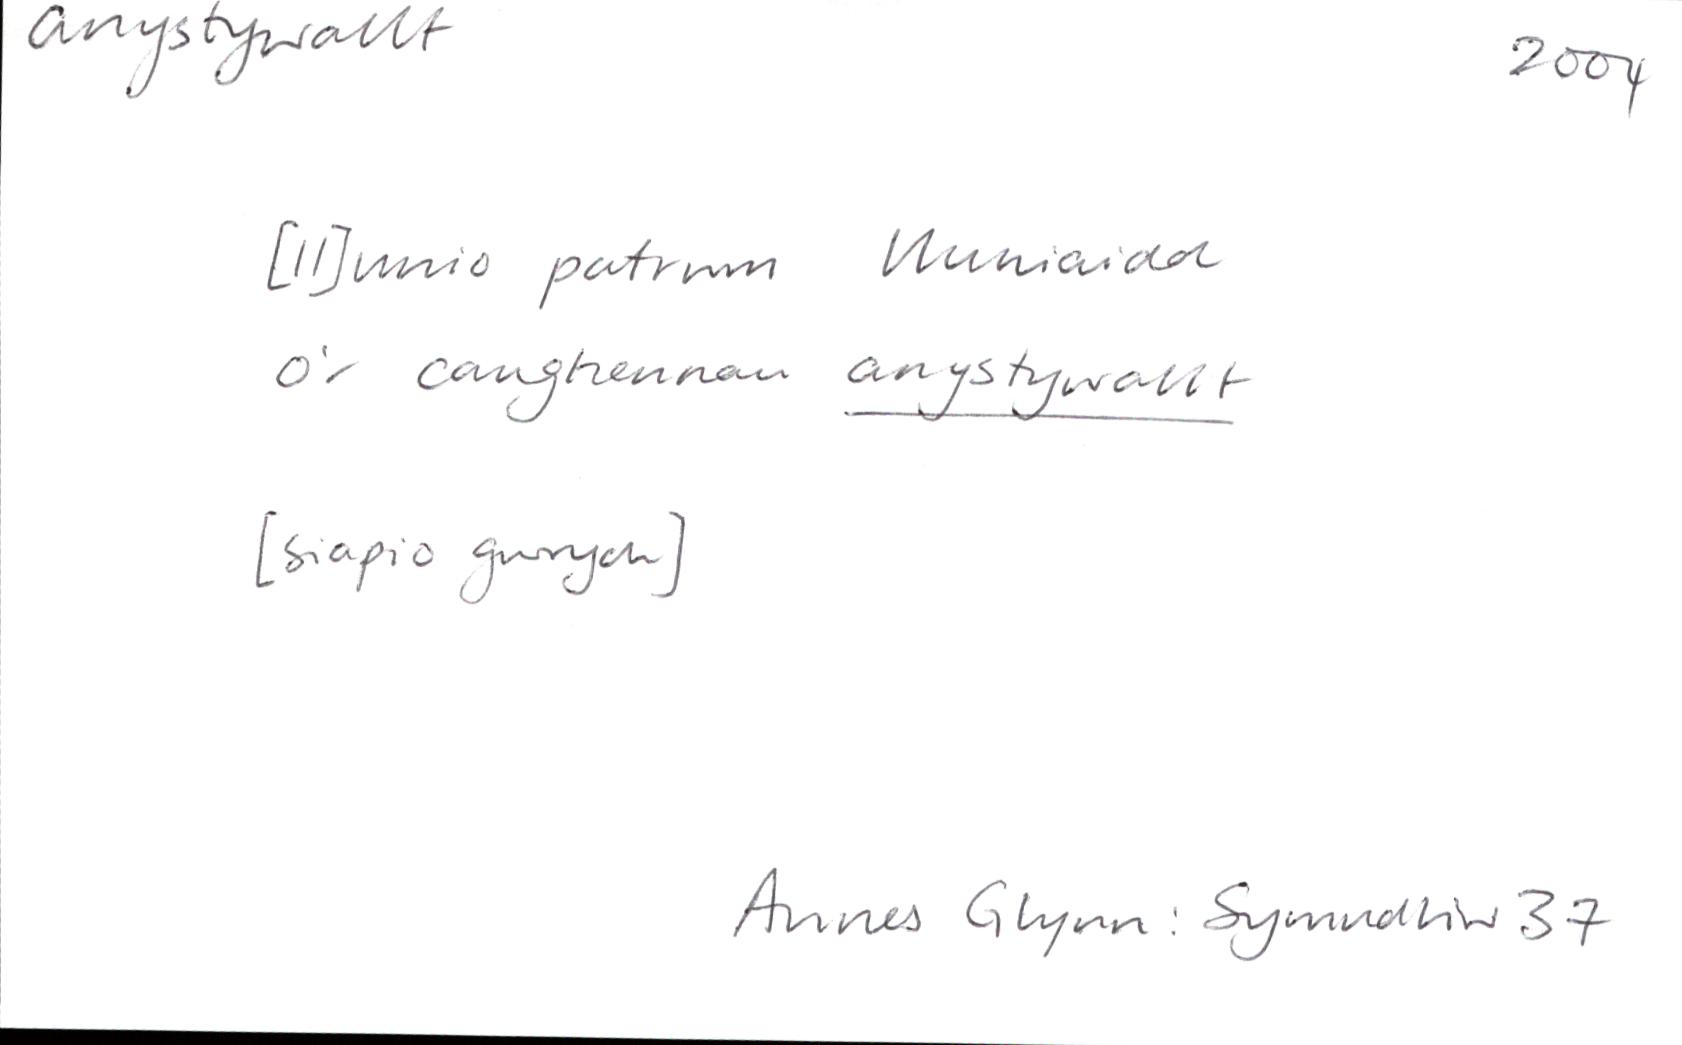 anystywallt
2004
[ll]unio patrwm lluniaidd
o'r canghennau anystywallt
[siapio gwrych]
Annes Glynn: Symudliw 37